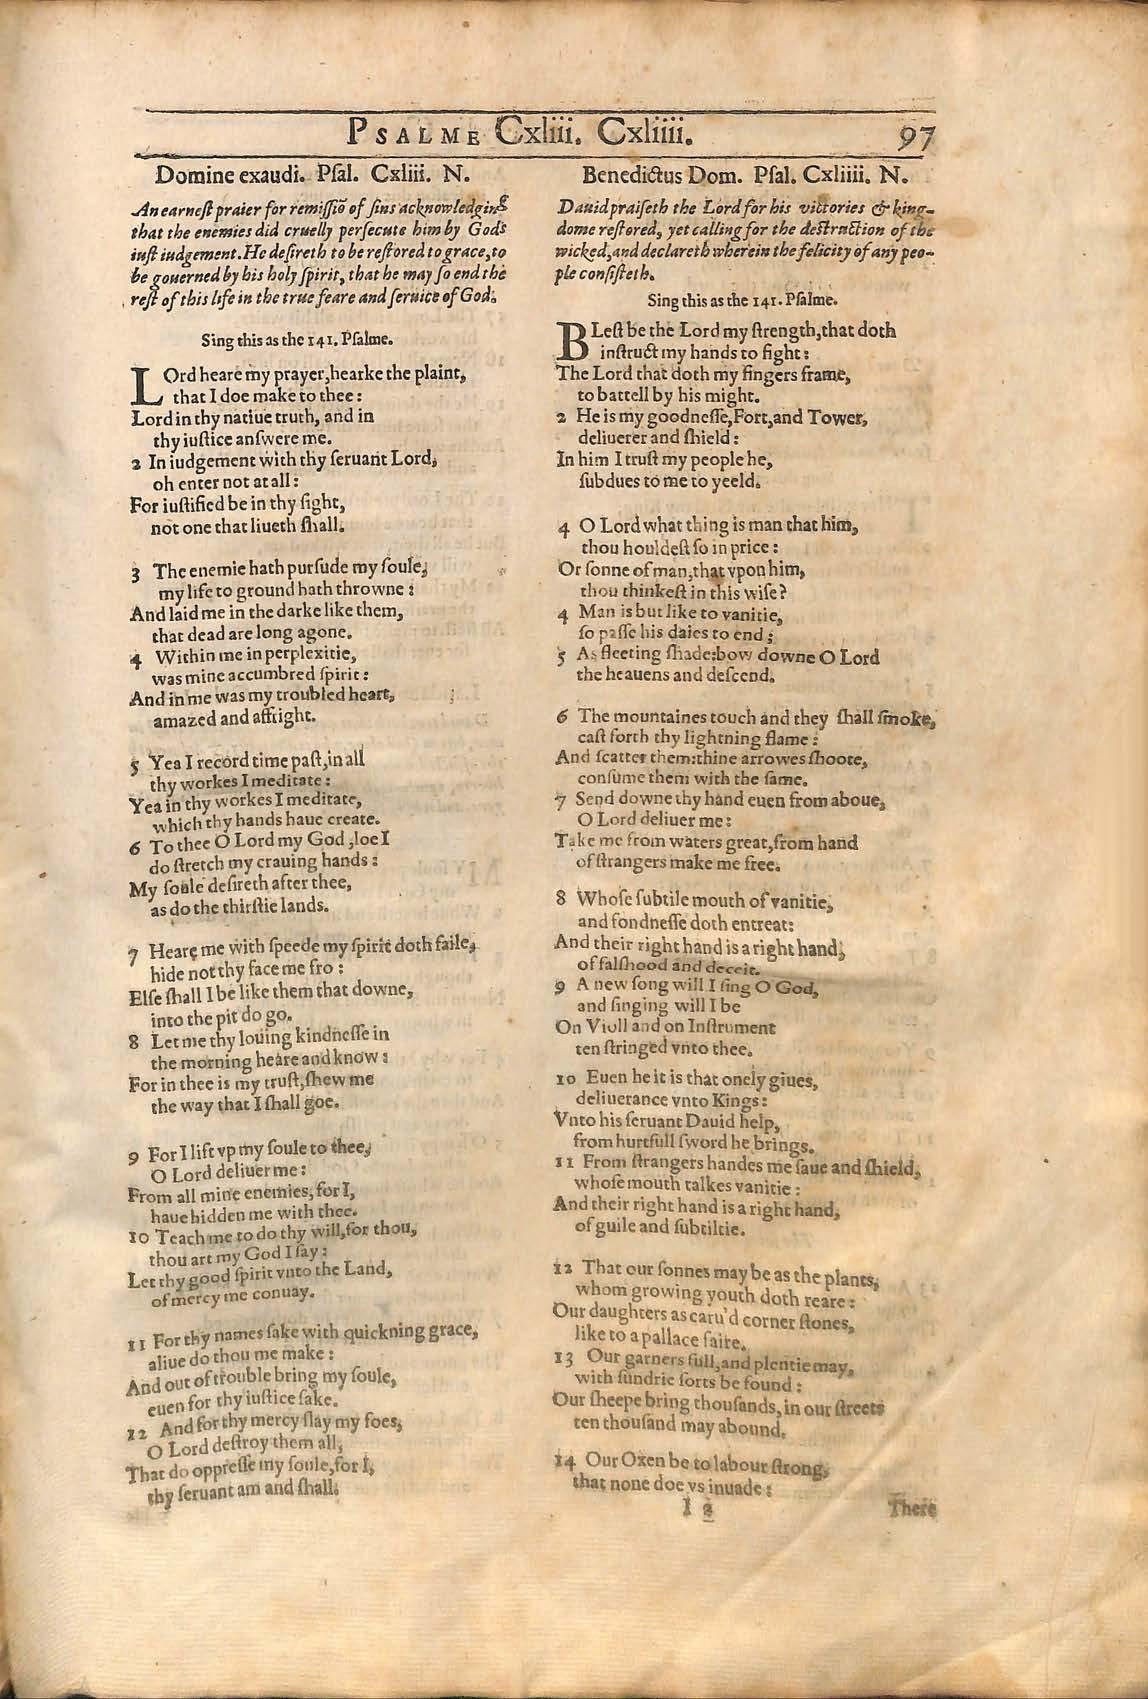 PSALME Cxliii. Cxliiii. 97
Domine exaudi. Pſal. Cxliii. N.
An earneſt praier for remiſſiō of ſins acknowledging
that the enemies did cruelly perſecute him by Gods
iuſt iudgement. He deſireth to be reſtored to grace, to
be gouerned by his holy ſpirit, that he may ſo end the
reſt of this life in the true feare and ſeruice of God.
Sing this as the 141. Pſalme.
LOrd heare my prayer, hearke the plaint,
that I doe make to thee:
Lord in thy natiue truth, and in
thy iuſtice anſwere me.
2 In iudgement with thy ſeruant Lord,
oh enter not at all:
For iuſtified be in thy ſight,
not one that liueth ſhall.
3 The enemie hath purſude my ſoule,
my life to ground hath throwne:
And laid me in the darke like them,
that dead are long agone.
4 Within me in perplexitie,
was mine accumbred ſpirit:
And in me was my troubled heart,
amazed and affright.
5 Yea I record time paſt, in all
thy workes I meditate:
Yea in thy workes I meditate,
which thy hands haue create.
6 To thee O Lord my God, loe I
do ſtretch my crauing hands:
My ſoule deſireth after thee,
as do the thirſtie lands.
7 Heare me with ſpeede my ſpirit doth faile,
hide not thy face me fro:
Elſe ſhall I be like them that downe,
into the pit do go.
8 Let me thy louing kindneſſe in
the morning heare and know:
For in thee is my truſt, ſhew me
the way that I ſhall goe.
9 For I lift vp my ſoule to thee,
O Lord deliuer me:
From all mine enemies, for I,
haue hidden me with thee.
10 Teach me to do thy will, for thou,
thou art my God I ſay:
Let thy good ſpirit vnto the Land,
of mercy me conuay.
11 For thy names ſake with quickning grace,
aliue do thou me make:
And out of trouble bring my ſoule,
euen for thy iuſtice ſake.
12 And for thy mercy ſlay my foes,
O Lord deſtroy them all,
That do oppreſſe my ſoule, for I,
thy ſeruant am and ſhall.
Benedictus Dom. Pſal. Cxliiii. N.
Dauid praiſeth the Lord for his victories & king-
dome reſtored, yet calling for the deſtruction of the
wicked, and declareth wherein the felicity of any peo-
ple conſiſteth.
Sing this as the 141. Pſalme.
BLeſt be the Lord my ſtrength, that doth
inſtruct my hands to fight:
The Lord that doth my fingers frame,
to battell by his might.
2 He is my goodneſſe, Fort, and Tower,
deliuerer and ſhield:
In him I truſt my people he,
ſubdues to me to yeeld.
4 O Lord what thing is man that him,
thou houldeſt ſo in price:
Or ſonne of man, that vpon him,
thou thinkeſt in this wiſe?
4 Man is but like to vanitie,
ſo paſſe his daies to end;
5 As fleeting ſhade: bow downe O Lord
the heauens and deſcend.
6 The mountaines touch and they ſhall ſmoke,
caſt forth thy lightning flame:
And ſcatter them: thine arrowes ſhoote,
conſume them with the ſame.
7 Send downe thy hand euen from aboue,
O Lord deliuer me:
Take me from waters great, from hand
of ſtrangers make me free.
8 Whoſe ſubtile mouth of vanitie,
and fondneſſe doth entreat:
And their right hand is a right hand,
of falſhood and deceit.
9 A new ſong will I ſing O God,
and ſinging will I be
On Violl and on Inſtrument
ten ſtringed vnto thee.
10 Euen he it is that onely giues,
deliuerance vnto Kings:
Vnto his ſeruant Dauid help,
from hurtfull ſword he brings.
11 From ſtrangers handes me ſaue and ſhield,
whoſe mouth talkes vanitie:
And their right hand is a right hand,
of guile and ſubtiltie.
12 That our ſonnes may be as the plants,
whom growing youth doth reare:
Our daughters as caru'd corner ſtones,
like to a pallace faire.
13 Our garners full, and plentie may,
with ſundrie ſorts be found:
Our ſheepe bring thouſands, in our ſtreets
ten thouſand may abound.
14 Our Oxen be to labour ſtrong,
that none doe vs inuade:
I 2 There